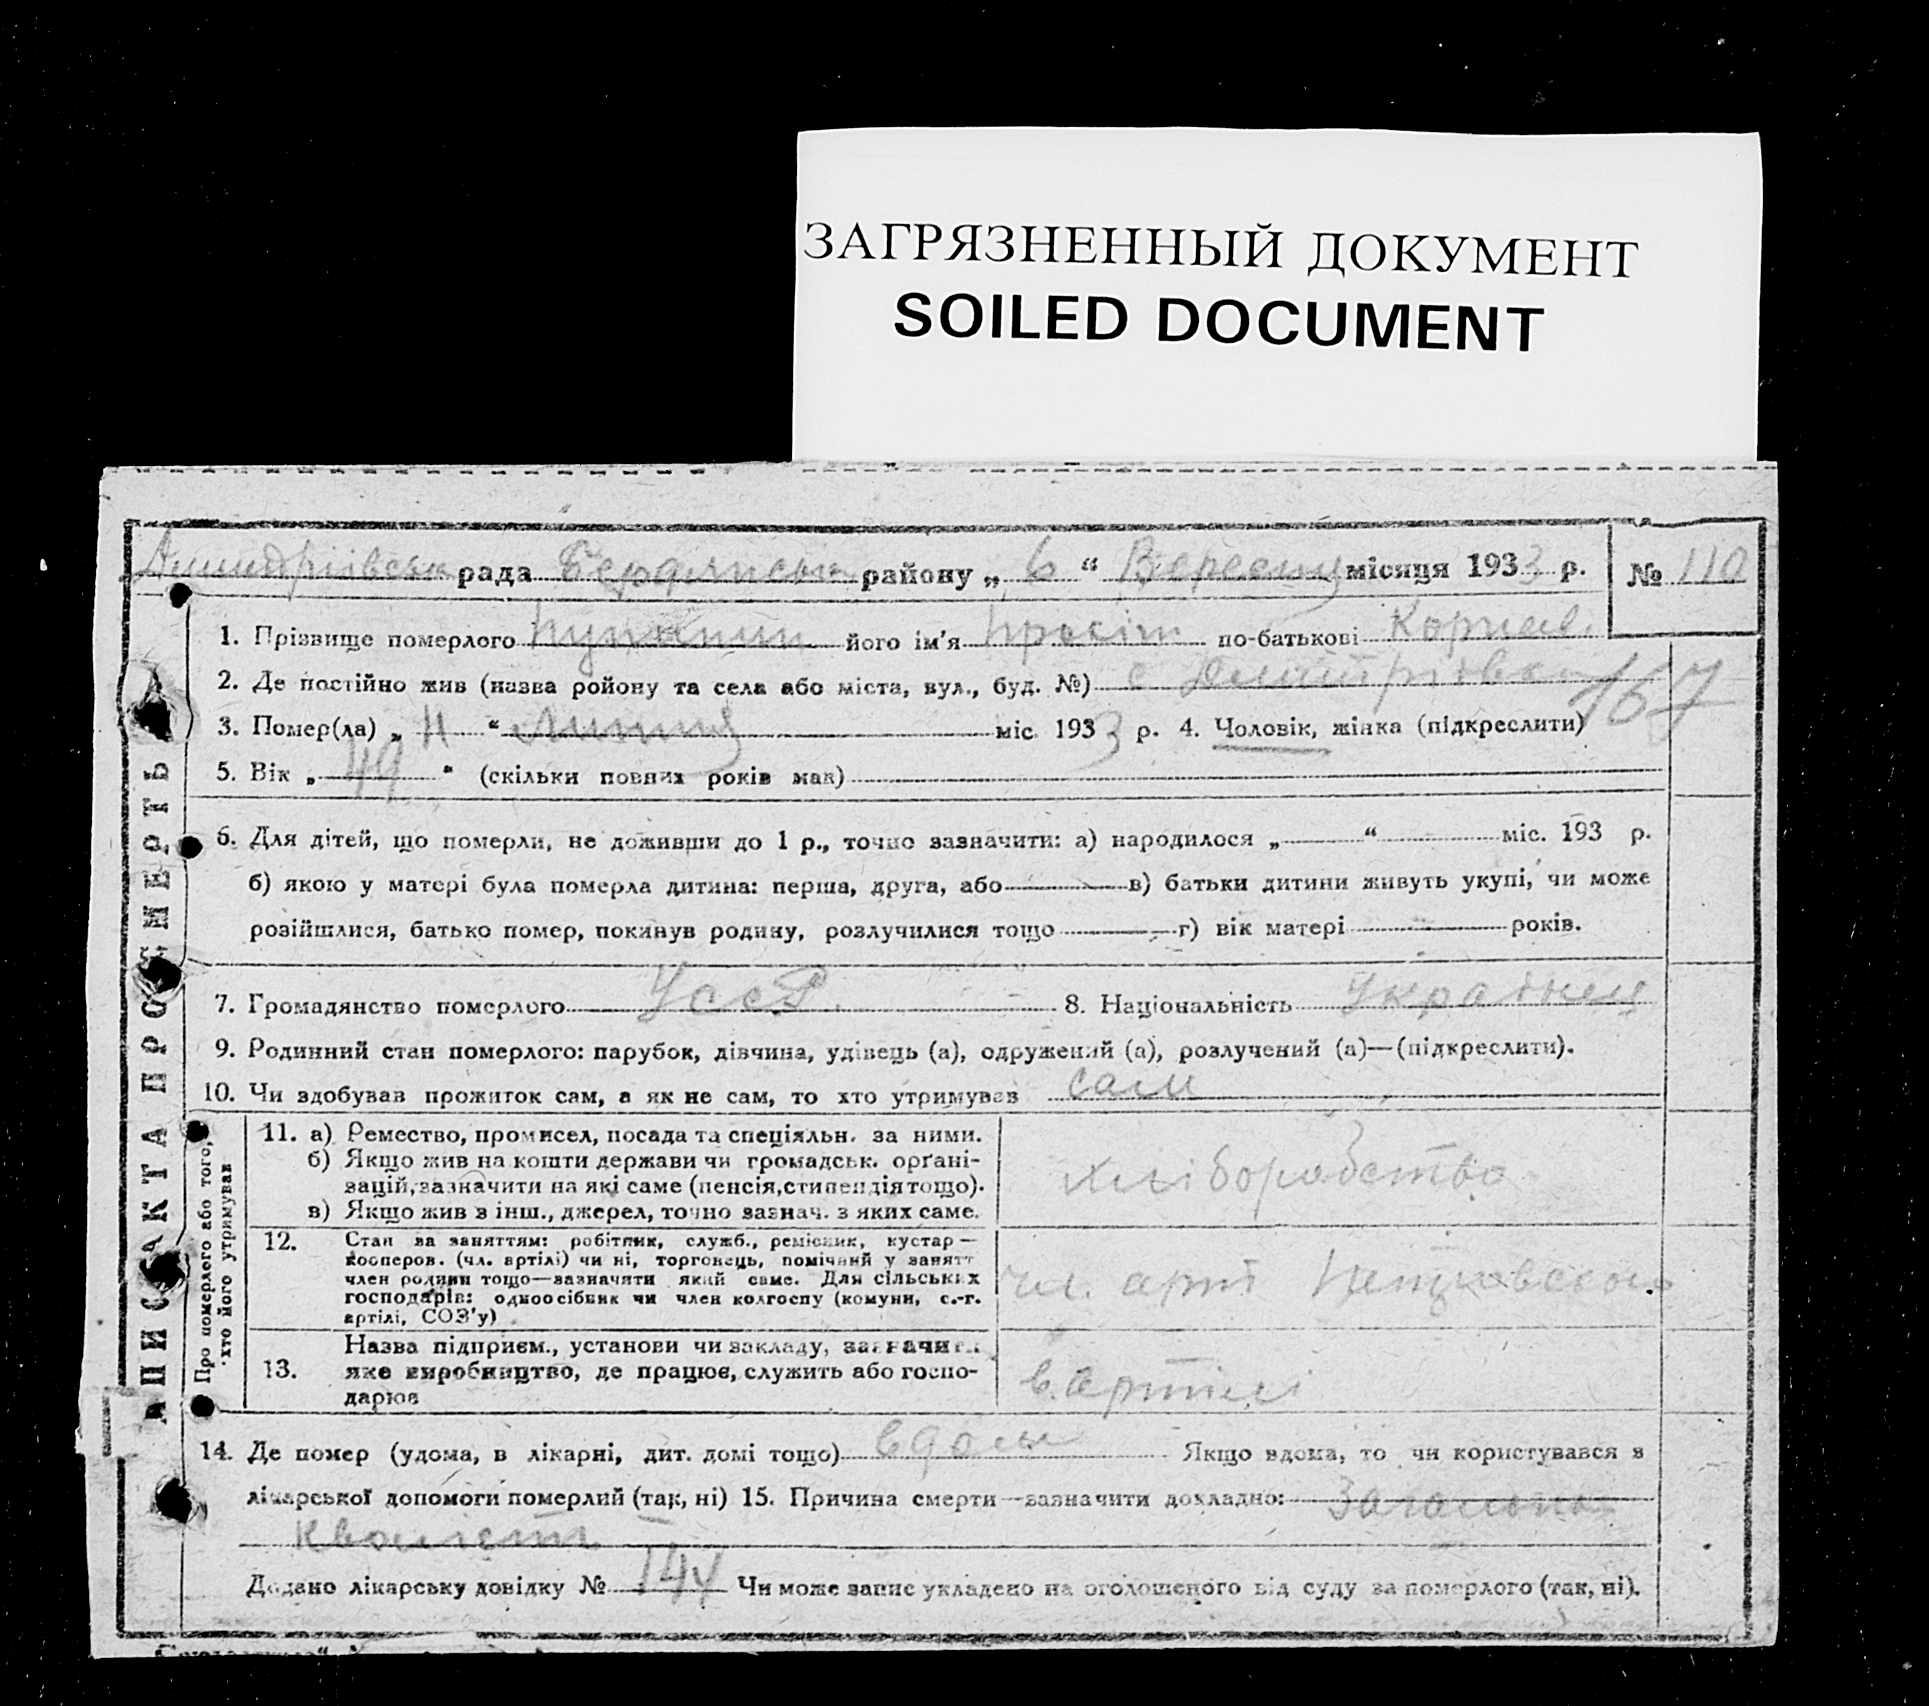 ЗАГРЯЗНЕННЫЙ ДОКУМЕНТ
SOILED DOCUMENT
рада Бердянськ району „ 6 “ Вересня місяця 1933 р. № 110
1. Прізвище померлого його ім'я по-батькові Корнієв.
2. Де постійно жив (назва ройону та села або міста, вул., буд. №) с Дмитрівка
167
3. Помер(ла) „ 11 “ Липня міс 1933 р. 4. Чоловік, жінка (підкреслити)
5. Вік „ 49 “ (скільки повних років мав)
6. Для дітей, що померли, не доживши до 1 р., точно зазначити: а) народилося „ “ міс. 193 р.
б) якою у матері була померла дитина: перша, друга, або в) батьки дитини живуть укупі, чи може
розійшлися, батько помер, покинув родину, розлучилися тощо г) вік матері років.
7. Громадянство померлого УССР. 8. Національність Українец
9. Родинний стан померлого: парубок, дівчина, удівець (а), одружений (а), розлучений (а)—(підкреслити).
10. Чи здобував прожиток сам, а як не сам, то хто утримував сам
ВИПИСКА ПРО СМЕРТЬ
Про померлого або того, хто його утримував
11. а) Ремество, промисел, посада та спеціяльн. за ними.
б) Якщо жив на кошти держави чи громадськ. орґані-
зацій, зазначити на які саме (пенсія, стипендія тощо).
в) Якщо жив з інш., джерел, точно зазнач. з яких саме.
хліборобство
12. Стан за заняттям: робітник, служб., ремісник, кустар—
кооперов. (чл. артілі) чи ні, торговець, помічний у занятт
член родини тощо—зазначити який саме. Для сільських
господарів: одноосібник чи член колгоспу (комуни, с.-г.
артілі, СОЗ'у)
чл. арті Петровского
13. Назва підприєм., установи чи закладу, зазначити
яке виробництво, де працює, служить або госпо-
дарює
в. артілі
14. Де помер (удома, в лікарні, дит. домі тощо) вдома Якщо вдома, то чи користувався з
лікарської допомоги померлий (так, ні) 15. Причина смерти—зазначити докладно: Загальна
Додано лікарську довідку № Чи може запис укладено на оголошеного від суду за померлого (так, ні).